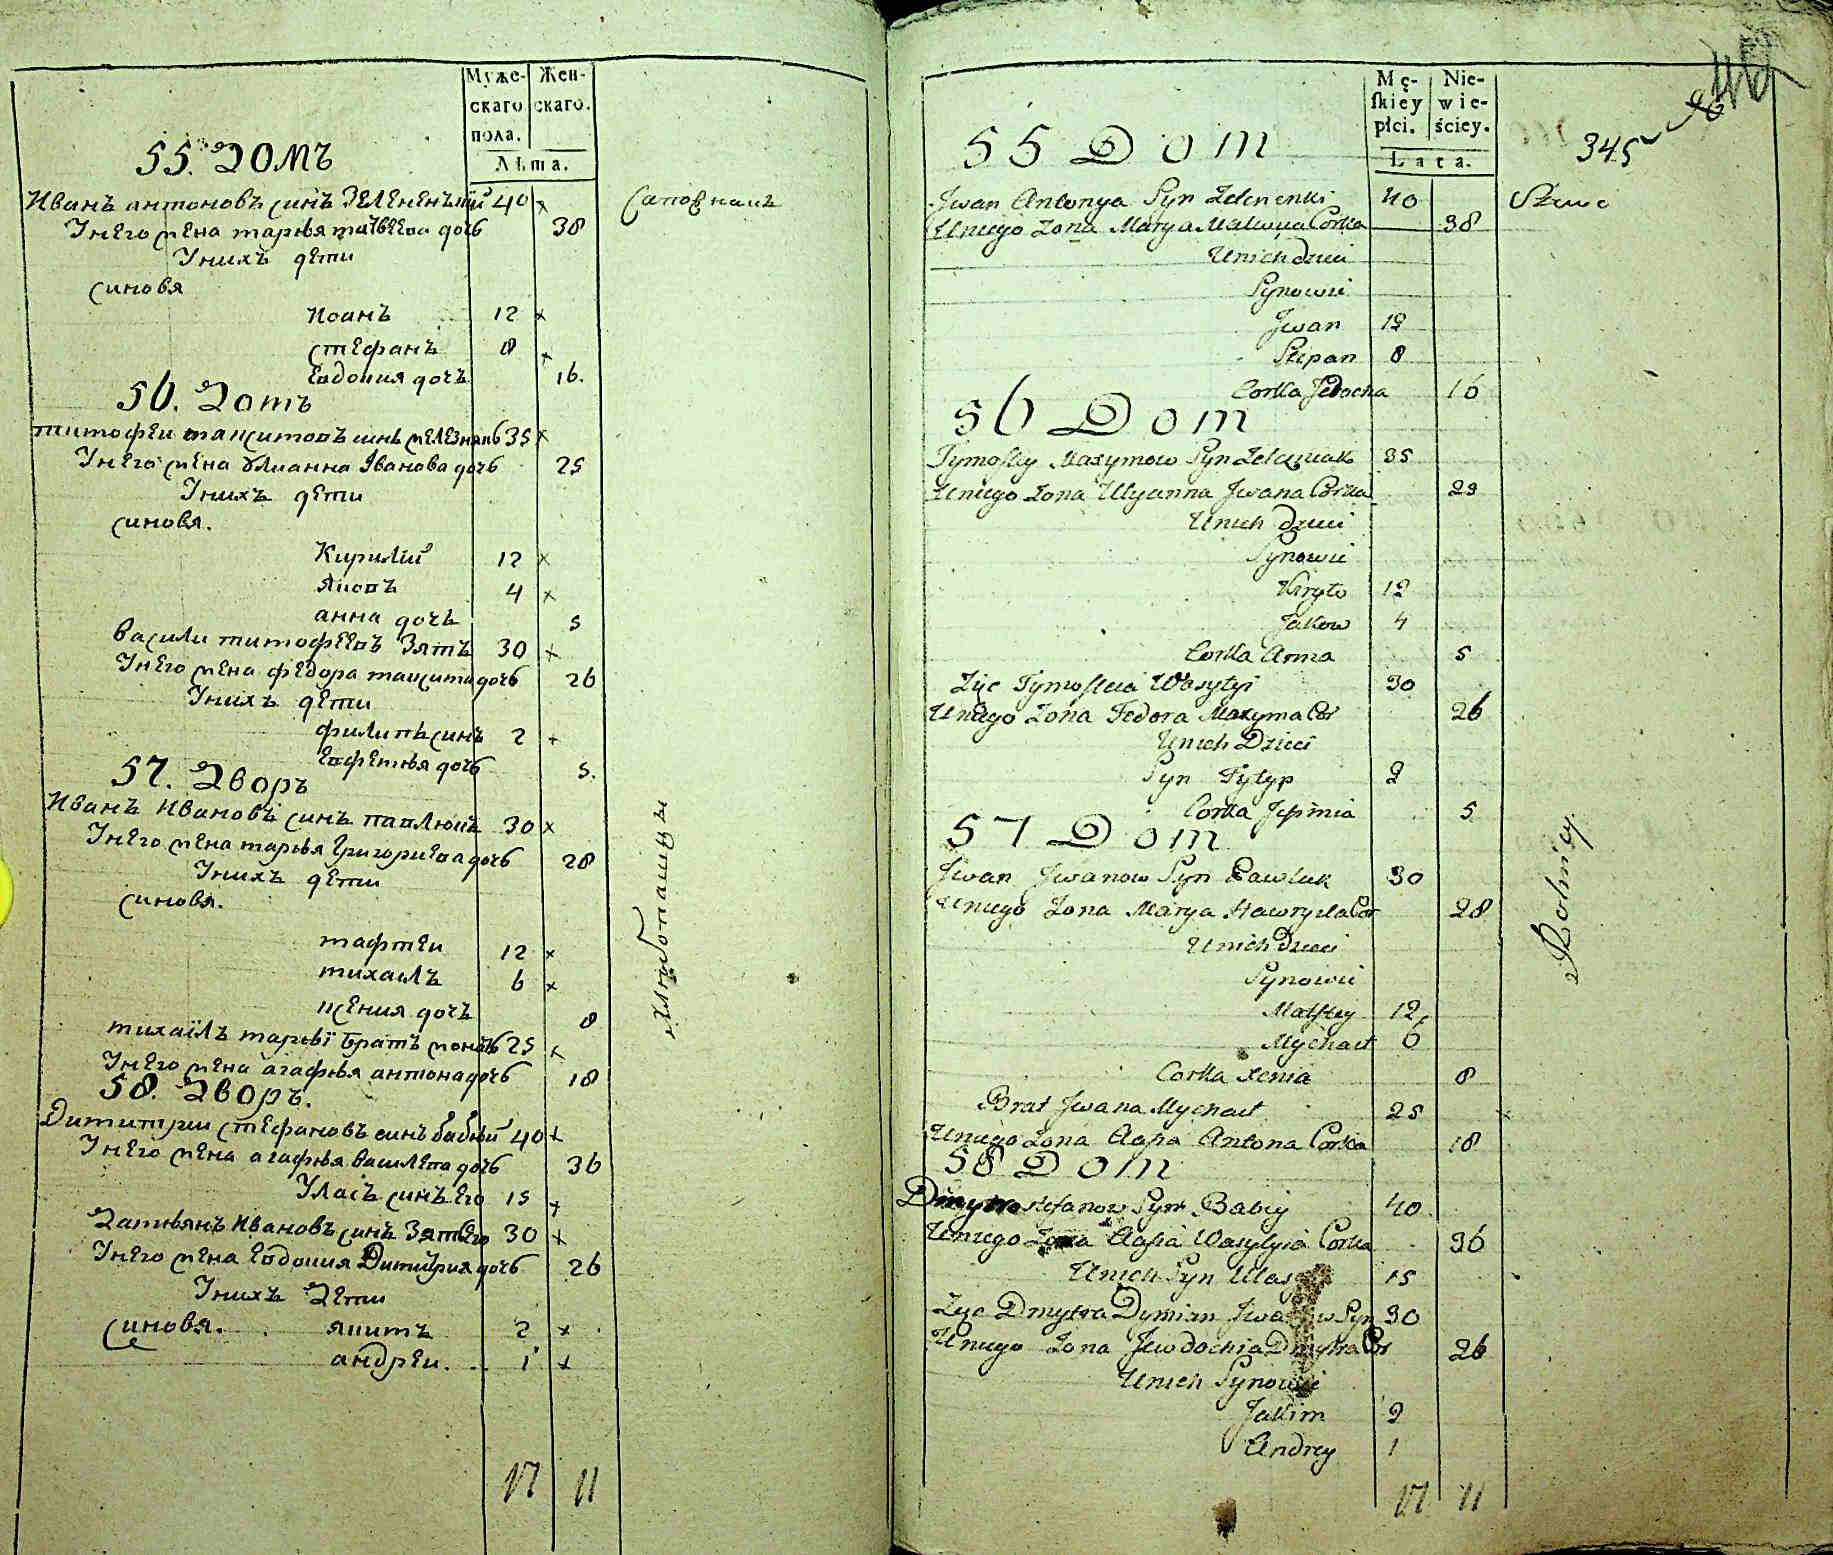 Муже-
скаго
пола.
Жен-
скаго.
Лѣта.
55. Домъ
Иванъ антоновъ синъ Зеленень 40 ×
Унего жена марья матвеева дочь 38
Унихъ дети
синовя
иоанъ 12 ×
стефанъ 8 ×
Евдокия дочъ 16.
56. Домъ
тимофеи максимовъ синъ железнякъ 35 ×
Унего жена Улианна Іванова дочь 25
Унихъ дети
синовя.
Кирилій 12 ×
яковъ 4 ×
анна дочъ 5
василии тимофеевъ Зятъ 30 ×
Унего жена федора максима дочь 26
Унихъ дети
филипъ синъ 2 ×
Евфемья дочь 5.
57. Дворъ
Иванъ Ивановъ синъ павлюкъ 30 ×
Унего жена марья Григориева дочь 28
Унихъ дети
синовя.
мафтеи 12 ×
михаилъ 6 ×
ксения дочъ 8
михаілъ братъ 25 ×
Унего жена агафья антона дочь 18
58. Дворъ.
Димитрии стефановъ синъ бабий 40 ×
Унего жена агафья василева дочь 36
Уласъ синъ Его 15 ×
Дамьянъ Ивановъ синъ Зять Его 30 ×
Унего жена Евдокия Димитрия дочь 26
Унихъ Дети
синовя. якимъ 2 ×
андреи. 1 ×
17 11
Хлибопашцы
Mę-
skiey
płci.
Nie-
wie-
ściey.
Lata.
345
55 Dom
Jwan Antonya Syn Zelenenki 40
Uniego Zona Marya Matwija Corka 38
Unich dzieci
Synowie
Jwan 12
Stepan 8
Corka Jedocha 16
56 Dom
Tymofiey Maxymow Syn Zelezniak 35
Uniego Zona Ulyanna Jwana Corka 25
Unich Dzieci
Synowie
Kiryło 12
Jakow 4
Corka Anna 5
Zięc Tymofieia Wasylyi 30
Uniego Zona Fedora Maxyma Cor 26
Unich Dzieci
Syn Fylyp 2
Corka Jefimia 5
57 Dom
Jwan Jwanow Syn Pawluk 30
Uniego Zona Marya Hawryła Cor 28
Unich Dzieci
Synowie
Maftey 12
Mychaił 6
Corka Xenia 8
Brat Jwana Mychaił 25
Uniego Zona Aafia Antona Corka 18
58 Dom
Dmytro Stefanow Syn Babiy 40
Uniego Zona Aafia Wasylyia Corka 36
Unich Syn Ulas 15
Zięc Dmytra Dymian Jwanow Syn 30
Uniego Zona Jewdochia Dmytra Cor 26
Unich Synowie
Jakim 2
Andrey 1
17 11
Rolnicy